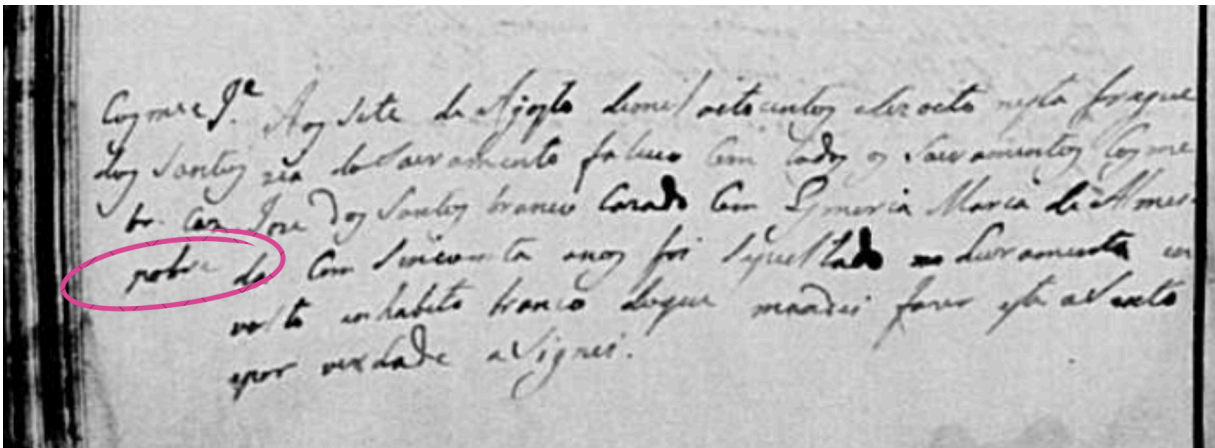 Cosme Je. Aos Sete de Agosto demil oitocentos edezoito nesta fregue
dos Santos zia do Sacramento faleceo Com todos os Sacramentos Cosme
br. Caz. Joze dos Santos branco Cazado Com Esmeria Maria de Almei
pobre da Com Sincoenta anos foi Sepultado no Sacramento en
volto en habito branco doque mandei fazer este aSento
epor verdade aSignei.